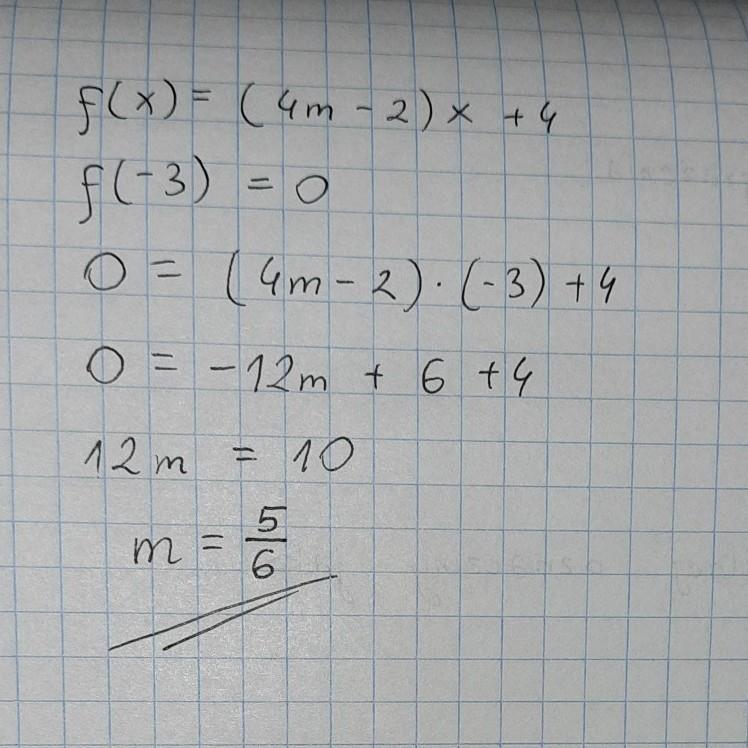 f(x) = (4m - 2)x + 4
f(-3) = 0
0 = (4m - 2) · (-3) + 4
0 = -12m + 6 + 4
12m = 10
m = 5/6